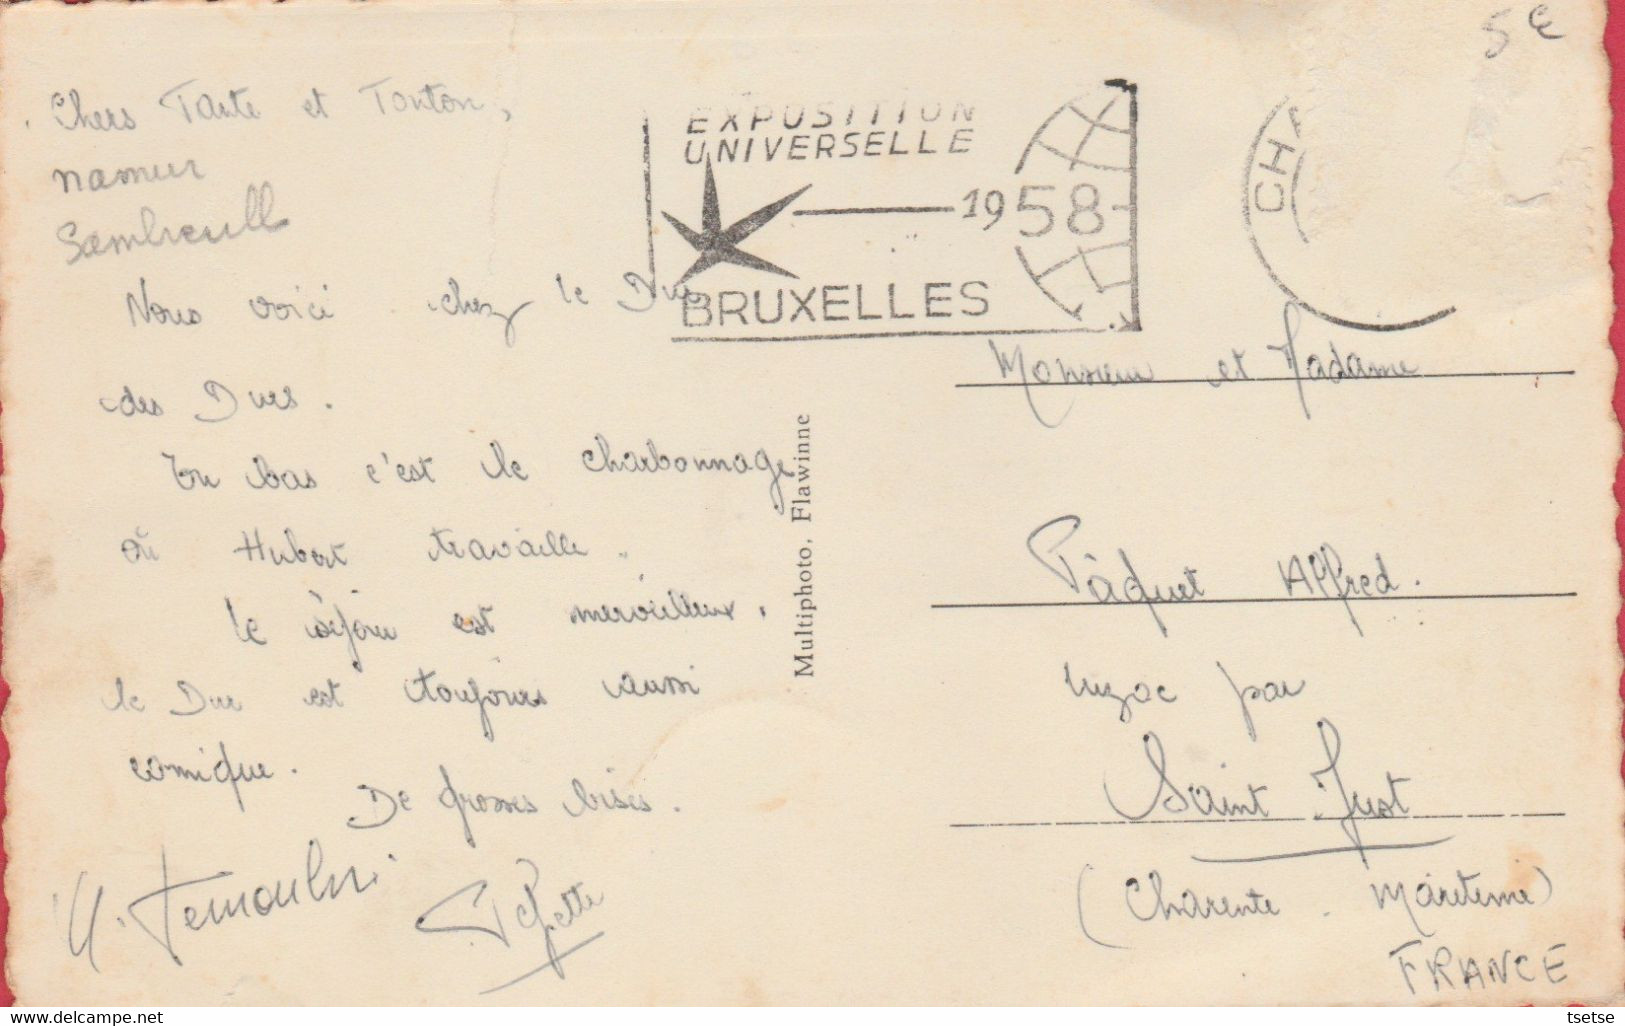 5€
Chers Tante et Tonton,
namur
Nous voici chez le Duc
des Ducs.
En bas c'est le charbonnage
où Hubert travaille.
Le séjour est merveilleux.
le Duc est toujours aussi
comique.
De grosses bises.
EXPOSITION
UNIVERSELLE
1958
BRUXELLES
CHA
Multiphoto, Flawinne
Monsieur et Madame
Pâquet Alfred.
Luzac par
Saint Just
(Charente - Maritime)
FRANCE
www.delcampe.net
tsetse